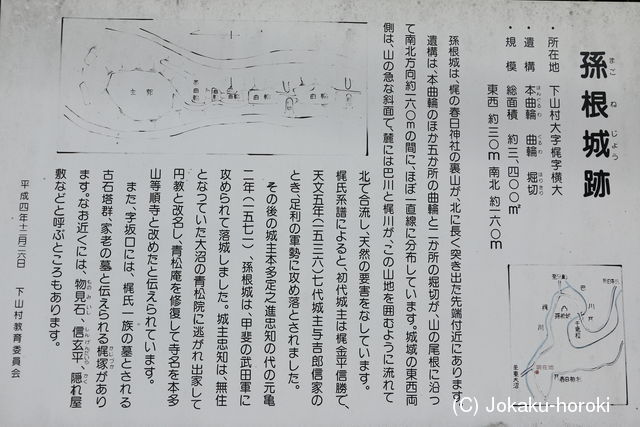 孫根城跡
まごねじょう
・所在地 下山村大字梶字横大
・遺構 本曲輪 曲輪 堀切
ほんくるわ くるわ ほりきり
・規模 総面積 約三、四〇〇㎡
東西 約三〇m 南北 約一六〇m
孫根城は、梶の春日神社の裏山が、北に長く突き出た先端付近にあります。
遺構は、本曲輪のほか五か所の曲輪と二か所の堀切が、山の尾根に沿っ
て南北方向約一六〇mの間に、ほぼ一直線に分布しています。城域の東西両
側は、山の急な斜面で、麓には巴川と梶川が、この山地を囲むように流れて
北で合流し、天然の要害をなしています。
梶氏系譜によると、初代城主は梶金平信勝で、
天文五年(一五三六)七代城主与吉郎信家の
とき、足利の軍勢に攻め落とされました。
その後の城主本多定之進忠知の代の元亀
二年(一五七一)、孫根城は、甲斐の武田軍に
攻められて落城しました。城主忠知は、無住
となっていた大沼の青松院に逃がれ出家して
円教と改名し、青松庵を修復して寺名を本多
山等順寺と改めたと伝えられています。
また、字坂口には、梶氏一族の墓とされる
古石塔群、家老の墓と伝えられる梶塚があり
かじづか
ます。なお近くには、物見石、信玄平、隠れ屋
ものみいし しんげんびら かくれや
敷などと呼ぶところもあります。
しき
平成四年十二月二六日 下山村教育委員会
主郭
曲輪
曲輪
巴川
梶川
孫根城
現在地
至東大沼
(C) Jokaku-horoki